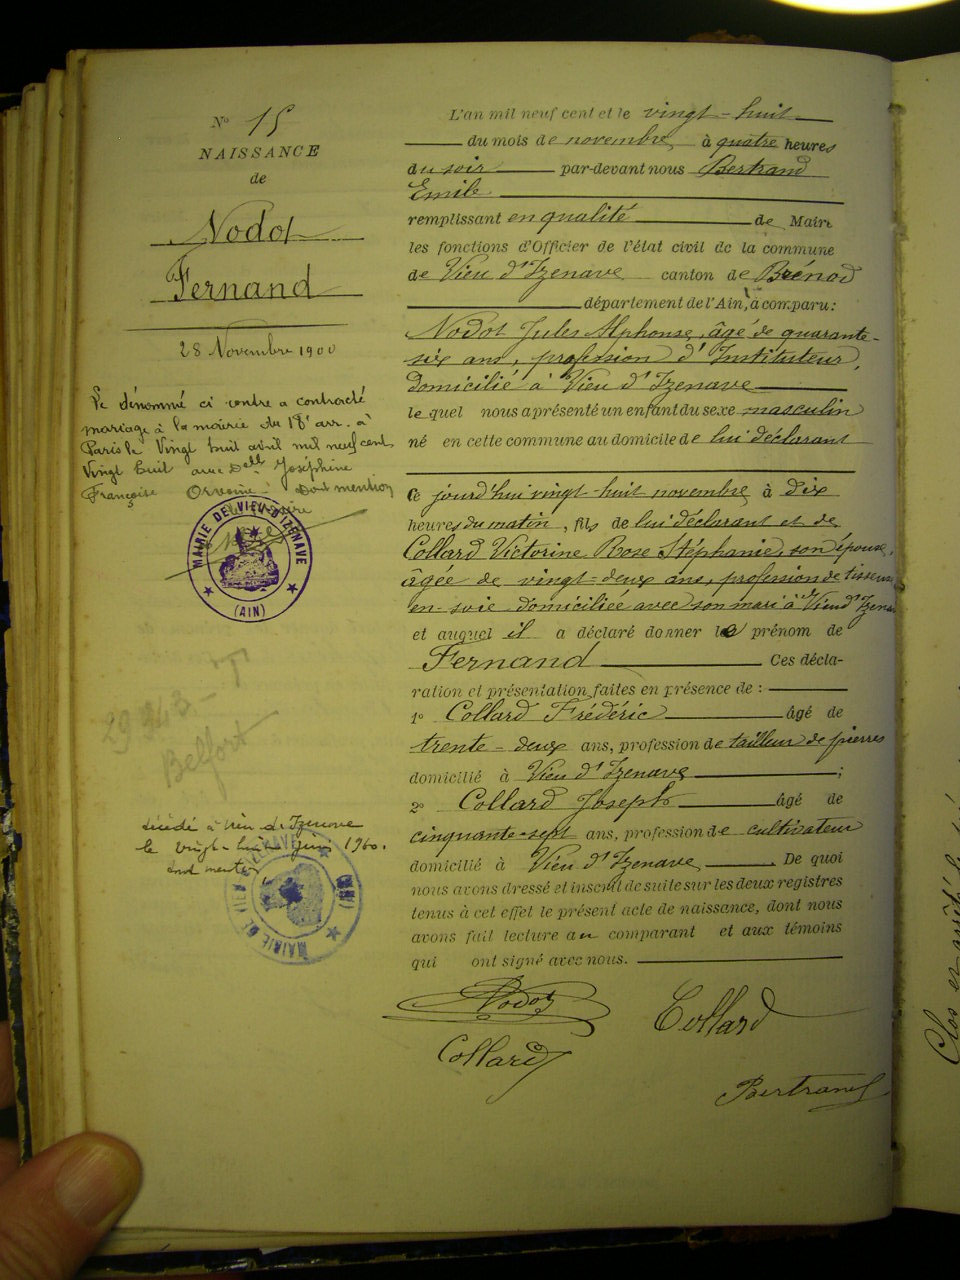 N° 15
NAISSANCE
de
Nodot
Fernand
28 Novembre 1900
Le dénommé ci contre a contracté
mariage à la mairie du 18e arr. à
Paris le Vingt huit avril mil neuf cent
Vingt huit avec Delle Joséphine
Françoise dont mention
MAIRIE DE VIEU-D'IZENAVE
(AIN)
29 943 - T
Belfort
décédé à Vieu d'Izenave
le vingt-huit juin 1960.
dont mention
MAIRIE DE VIEU D'IZENAVE (AIN)
L'an mil neuf cent et le vingt-huit
du mois de novembre, à quatre heures
du soir par-devant nous Bertrand
Emile
remplissant en qualité de Maire
les fonctions d'Officier de l'état civil de la commune
de Vieu d'Izenave canton de Brénod
département de l'Ain, a comparu:
Nodot Jules Alphonse, âgé de quarante-
six ans, profession d'Instituteur,
domicilié à Vieu d'Izenave
lequel nous a présenté un enfant du sexe masculin
né en cette commune au domicile de lui déclarant
Ce jourd'hui vingt-huit novembre à dix
heures du matin, fils de lui déclarant et de
Collard Victorine Rose Stéphanie, son épouse,
âgée de vingt-deux ans, profession de tisseuse
en soie domiciliée avec son mari à Vieu d'Izenave
et auquel il a déclaré donner le prénom de
Fernand Ces décla-
ration et présentation faites en présence de :
1° Collard Frédéric âgé de
trente-deux ans, profession de tailleur de pierres
domicilié à Vieu d'Izenave ;
2° Collard Joseph âgé de
cinquante-sept ans, profession de cultivateur
domicilié à Vieu d'Izenave. De quoi
nous avons dressé et inscrit de suite sur les deux registres
tenus à cet effet le présent acte de naissance, dont nous
avons fait lecture au comparant et aux témoins
qui ont signé avec nous.
Nodot
Collard
Collard
Bertrand